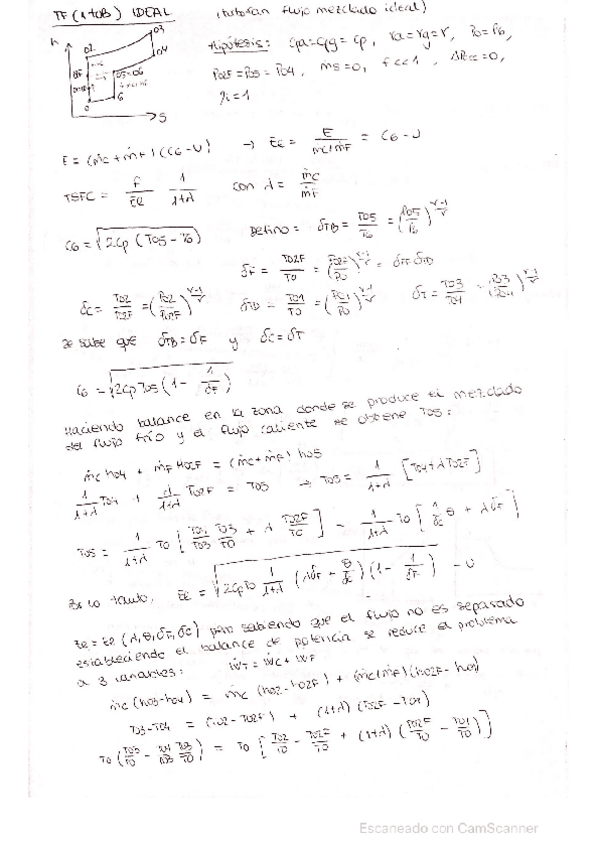 TF (1+0B) IDEAL (turbofan flujo mezclado ideal)
Hipótesis: Cpa=Cpg=Cp, γa=γg=γ, P0=P6,
P02F=P05=P04, ms=0, f<<1, ΔPcc=0,
ηi=1
E = (ṁc+ṁF)(C6-U) → EE = E/(ṁc+ṁF) = C6-U
TSFC = f/EE 1/(1+λ) con λ = ṁc/ṁF
C6 = √(2Cp (T05-T6)) Defino: δTB = T05/T6 = (P05/P6)^((γ-1)/γ)
δF = T02F/T0 = (P02F/P0)^((γ-1)/γ) =
δC = T02/T02F = (P02/P02F)^((γ-1)/γ) δTD = T01/T0 = (P01/P0)^((γ-1)/γ) δT = T03/T04 = (P03/P04)^((γ-1)/γ)
se sabe que δTB=δF y δC=δT
C6 = √(2CpT05(1 - 1/δF))
Haciendo balance en la zona donde se produce el mezclado
del flujo frío y el flujo caliente se obtiene T05:
ṁc h04 + ṁF h02F = (ṁc+ṁF) h05
1/(1+λ) T04 + λ/(1+λ) T02F = T05 → T05 = 1/(1+λ) [T04+λT02F]
T05 = 1/(1+λ) T0 [T04/T03 T03/T0 + λ T02F/T0] = 1/(1+λ) T0 [1/δC θ + λδF]
Por lo tanto, EE = √(2CpT0 1/(1+λ) (λδF + θ/δC)(1 - 1/δF)) - U
EE = EE (λ,θ,δF,δC) pero sabiendo que el flujo no es separado
estableciendo el balance de potencia se reduce el problema
a 3 variables: ẆT = ẆC + ẆF
ṁc (h03-h04) = ṁc (h02-h02F) + (ṁc+ṁF)(h02F-h01)
T03-T04 = (T02-T02F) + (1+λ)(T02F-T01)
T0 (T03/T0 - T04/T03 T03/T0) = T0 [T02/T0 - T02F/T0 + (1+λ)(T02F/T0 - T01/T0)]
Escaneado con CamScanner